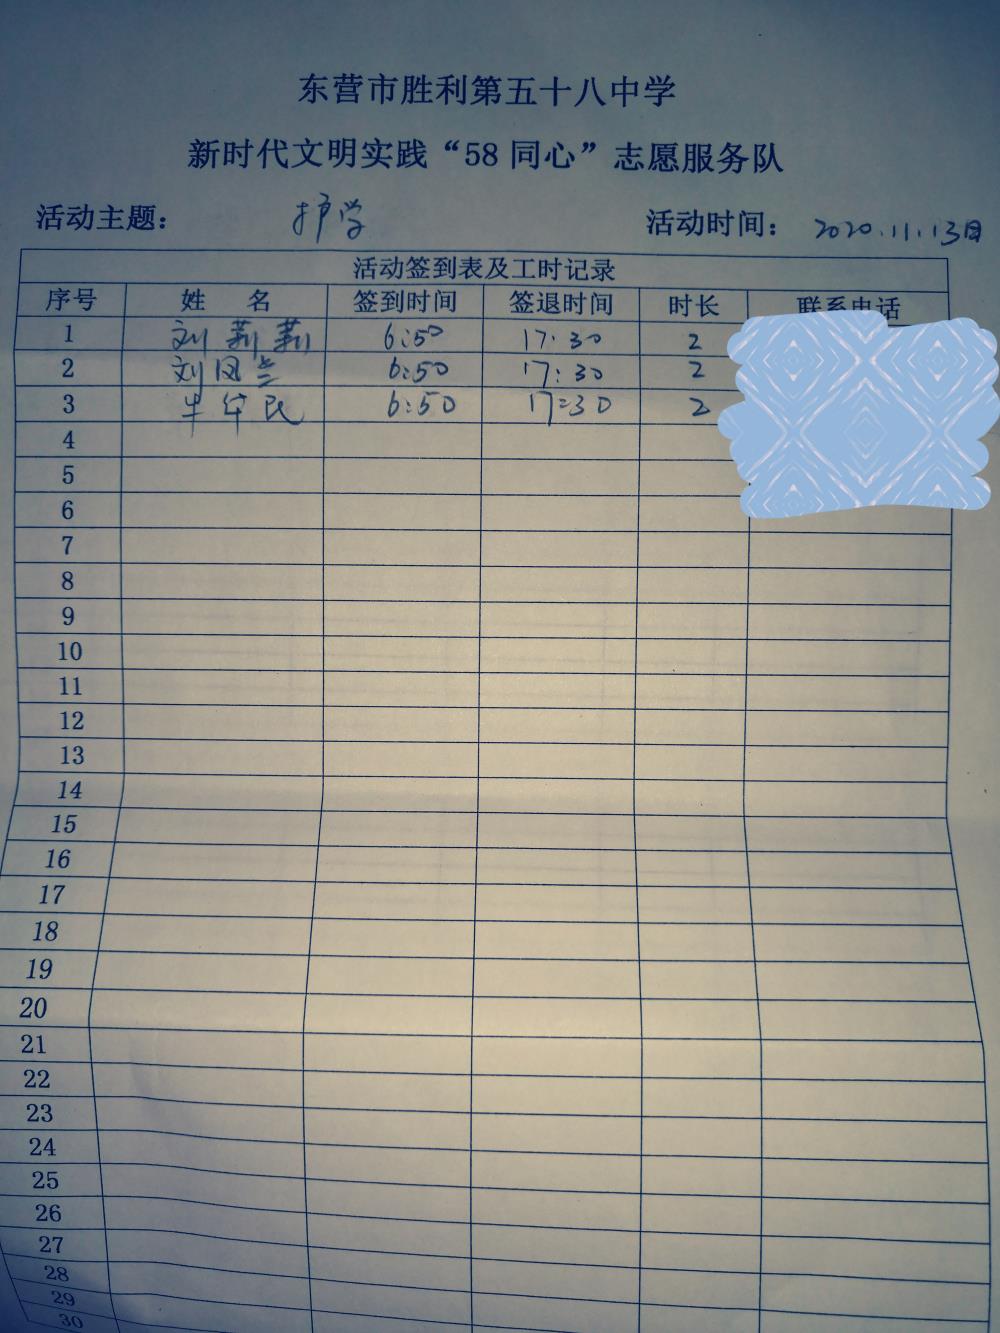 东营市胜利第五十八中学
新时代文明实践“58同心”志愿服务队
活动主题： 护学 活动时间： 2020.11.13日
活动签到表及工时记录
序号 姓 名 签到时间 签退时间 时长 联系电话
1 刘莉莉 6:50 17:30 2
2 刘凤兰 6:50 17:30 2
3 牛华民 6:50 17:30 2
4
5
6
7
8
9
10
11
12
13
14
15
16
17
18
19
20
21
22
23
24
25
26
27
28
29
30